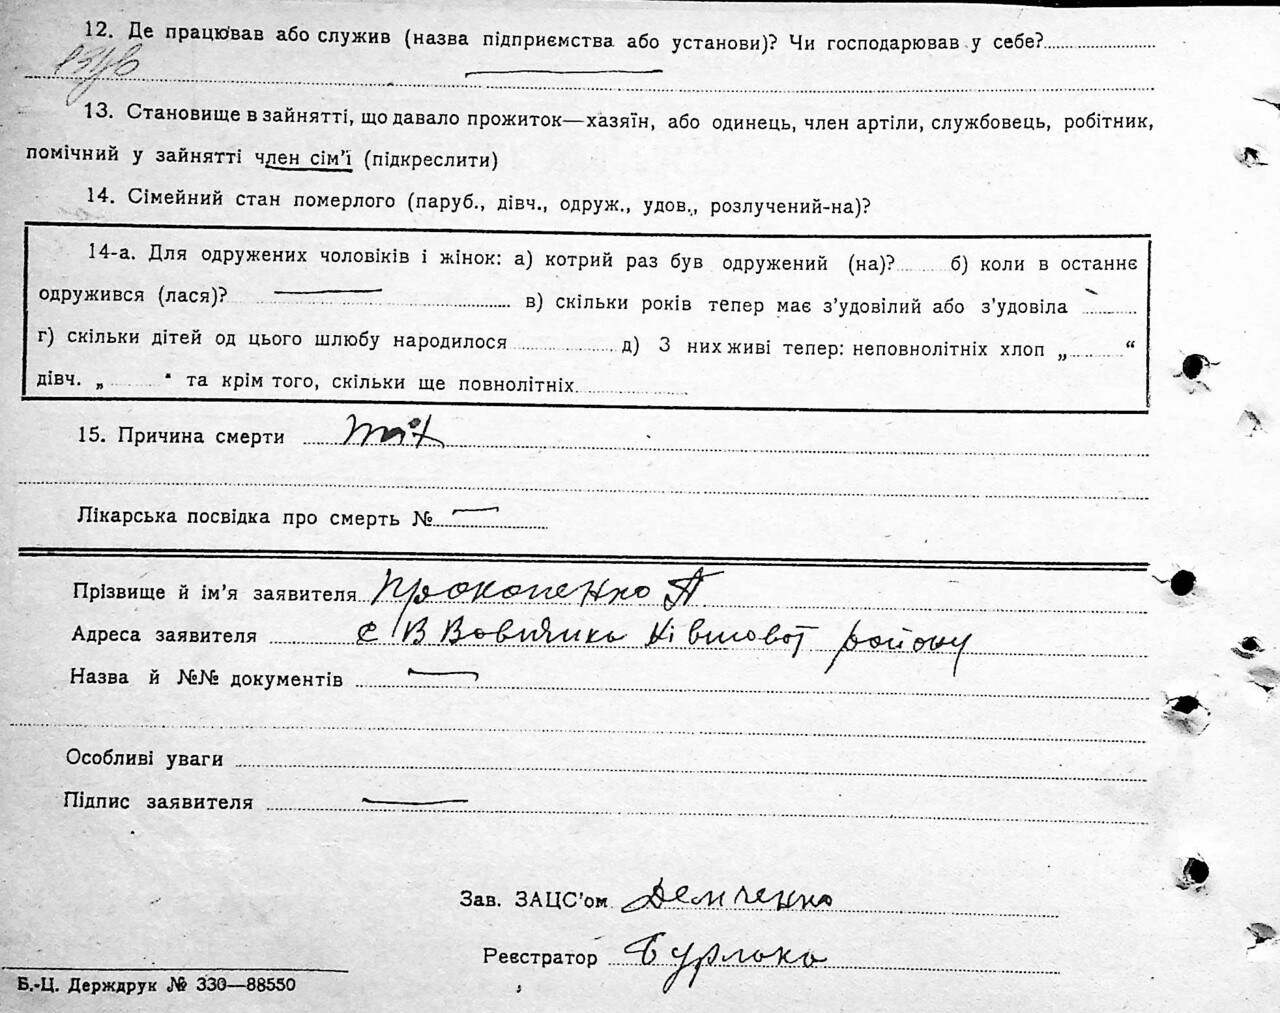 12. Де працював або служив (назва підприємства або установи)? Чи господарював у себе?
13. Становище в зайнятті, що давало прожиток—хазяїн, або одинець, член артіли, службовець, робітник,
помічний у зайнятті член сім'ї (підкреслити)
14. Сімейний стан померлого (паруб., дівч., одруж., удов., розлучений-на)?
14-а. Для одружених чоловіків і жінок: а) котрий раз був одружений (на)? б) коли в останнє
одружився (лася)? в) скільки років тепер має з'удовілий або з'удовіла
г) скільки дітей од цього шлюбу народилося д) З них живі тепер: неповнолітніх хлоп „ “
дівч. „ “ та крім того, скільки ще повнолітніх
15. Причина смерти
Лікарська посвідка про смерть №
Прізвище й ім'я заявителя Прокопенко А
Адреса заявителя району
Назва й №№ документів
Особливі уваги
Підпис заявителя
Зав. ЗАЦС'ом Демченко
Реєстратор Бурлака
Б.-Ц. Держдрук № 330—88550